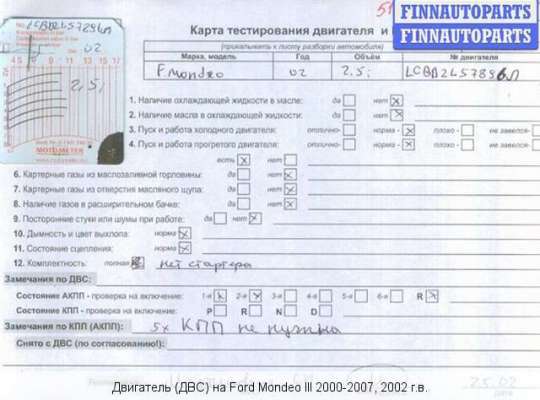 FINNAUTOPARTS
FINNAUTOPARTS
Карта тестирования двигателя и
(прикалывать к листу разборки автомобиля)
Марка, модель Год Объём № двигателя
F. mondeo 02 2.5i
1. Наличие охлаждающей жидкости в масле: да нет
2. Наличие масла в охлаждающей жидкости: да нет
3. Пуск и работа холодного двигателя: отлично- норма - плохо - не завелся-
4. Пуск и работа прогретого двигателя: отлично- норма - плохо - не завелся-
есть нет
6. Картерные газы из маслозаливной горловины: да нет
7. Картерные газы из отверстия масляного щупа: да нет
8. Наличие газов в расширительном бачке: да нет
9. Посторонние стуки или шумы при работе: да нет
10. Дымность и цвет выхлопа: норма
11. Состояние сцепления: норма
12. Комплектность: полная нет стартера
Замечания по ДВС:
Состояние АКПП - проверка на включение: 1-я 2-я 3-я 4-я 5-я 6-я R
Состояние КПП - проверка на включение: P R N D
Замечания по КПП (АКПП): 5х КПП не нужна
Снято с ДВС (по согласованию!):
25.02
дата
2,5i
02
MOTOMETER
Двигатель (ДВС) на Ford Mondeo III 2000-2007, 2002 г.в.